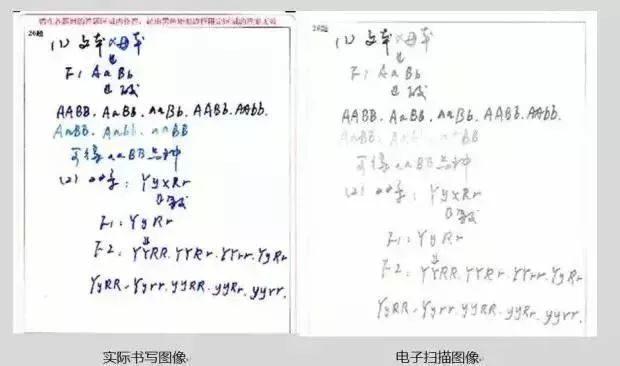 请在各题目的答题区域内作答，超出黑色矩形边框限定区域的答案无效
26题
(1) 父本×母本
↓
F1 AaBb
↓
AABB、AaBB、aaBb、AABb、AAbb、
AaBB、Aabb、aaBB
可得aaBB品种
(2) YyxRr
F1: YyRr
↓
F2: YYRR、YYRr、YYrr、YyRr
YyRR、Yyrr、yyRR、yyRr、yyrr.
实际书写图像
26题
(1) 父本×母本
↓
F1 AaBb
↓
AABB、AaBB、aaBb、AABb、AAbb、
AaBB、Aabb、aaBB
可得aaBB品种
(2) YyxRr
F1: YyRr
↓
F2: YYRR、YYRr、YYrr、YyRr
YyRR、Yyrr、yyRR、yyRr、yyrr.
电子扫描图像